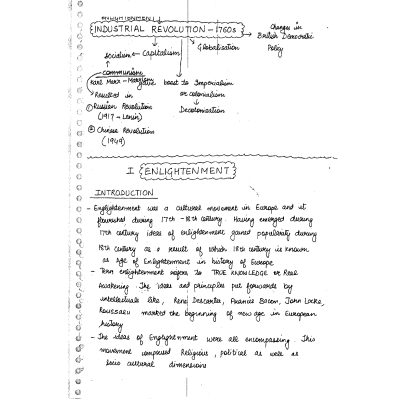 INDUSTRIAL REVOLUTION - 1760s
Changes in
British Democratic
Policy
Globalisation
Socialism ← Capitalism
communism
Karl Marx - Marxism
gave boost to Imperialism
or colonialism
Resulted in
① Russian Revolution
(1917 - Lenin)
Decolonisation
② Chinese Revolution
(1949)
I ENLIGHTENMENT
INTRODUCTION
- Englightenment was a cultural movement in Europe and it
flourished during 17th - 18th century. Having emerged during
17th century ideas of enlightenment gained popularity during
18th century as a result of which 18th century is known
as Age of Enlightenment in history of Europe
- Term enlightenment refers to TRUE KNOWLEDGE or Real
Awakening. The ideas and principles put forwards by
intellectuals like, Rene Descartes, Francis Bacon, John Locke,
Rousseau marked the beginning of new age in European
history
- The ideas of Englightenment were all encompassing. This
movement comprised Religious, political as well as
socio cultural dimensions